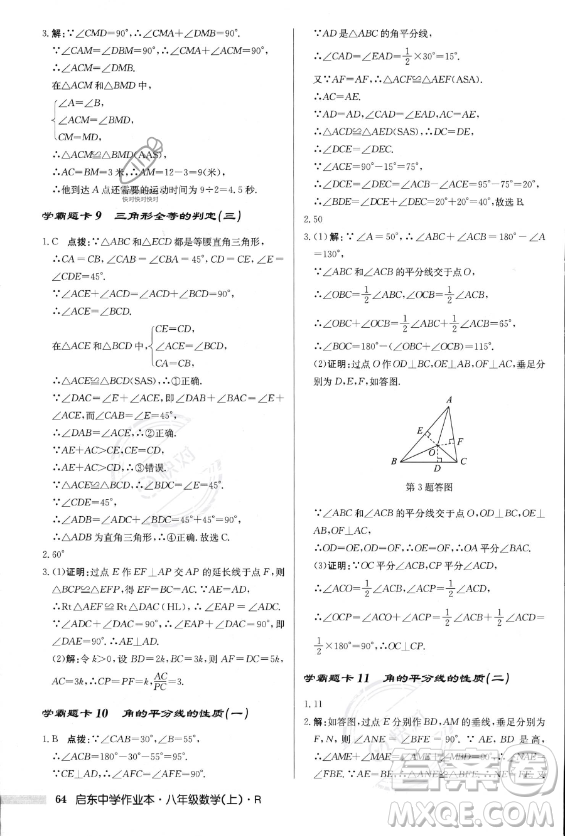 3.解:∵∠CMD=90°,∴∠CMA+∠DMB=90°.
∵∠CAM=∠DBM=90°,∴∠CMA+∠ACM=90°,
∴∠ACM=∠DMB.
在△ACM和△BMD中,
∠A=∠B,
∠ACM=∠DMB,
CM=MD,
∴△ACM≌△BMD(AAS),
∴AC=BM=3米,∴AM=12-3=9(米),
∴他到达A点还需要的运动时间为9÷2=4.5秒.
快对快对快对
学霸题卡9 三角形全等的判定(三)
1.C 点拨:∵△ABC和△ECD都是等腰直角三角形,
∴CA=CB,∠CAB=∠CBA=45°,CD=CE,∠E=
∠CDE=45°.
∵∠ACE+∠ACD=∠ACD+∠BCD,
∴∠ACE=∠BCD.
在△ACE和△BCD中,
CE=CD,
∠ACE=∠BCD,
CA=CB,
∴△ACE≌△BCD(SAS),∴①正确.
∵∠DAC=∠E+∠ACE,即∠DAB+∠CAB=∠E+
∠ACE,而∠CAB=∠E=45°,
∴∠DAB=∠ACE,∴②正确.
∵AE+AC>CE,CE=CD,
∴AE+AC>CD,∴③错误.
∵△ACE≌△BCD,∴∠BDC=∠E=45°.
∵∠CDE=45°,
∴∠ADB=∠ADC+∠BDC=45°+45°=90°,
∴△ADB为直角三角形,∴④正确.故选C.
2.60°
3.(1)证明:过点E作EF⊥AP交AP的延长线于点F,则
△BCP≌△EFP,得EF=BC=AD.
∴Rt△AEF≌Rt△DAC(HL),∴∠EAF=∠ADC.
∵∠ADC+∠DAC=90°,∴∠EAF+∠DAC=90°,
∴∠DAE=90°.
(2)解:令k>0,设BD=2k,DC=3k,则AF=DC=5k,
AC=3k,PC=PF=k,故AC/PC=3.
学霸题卡10 角的平分线的性质(一)
1.B 点拨:∵∠CAB=30°,∠B=55°,
∴∠ACB=180°-30°-55°=95°.
∵ED⊥AD,∴∠CDE=90°,
64 启东中学作业本·八年级数学(上)·R
∵AD是△ABC的角平分线,
∴∠CAD=∠EAD=1/2×30°=15°.
又∵AF=AF,∴△ACF≌△AEF(ASA).
∴AC=AE.
∴△ACD≌△AED(SAS),∴DC=DE,
∴∠DCE=∠DEC.
∵∠ACE=90°-15°=75°,
∴∠DCE=∠ACB-∠ACE=95°-75°=20°,
∴∠BDE=∠DCE+∠DEC=20°+20°=40°.故选B.
2.50
3.(1)解:∵∠A=50°,∴∠ABC+∠ACB=180°-∠A
=130°.
∵∠ABC和∠ACB的平分线交于点O,
∴∠OBC=1/2∠ABC,∠OCB=1/2∠ACB,
∴∠OBC+∠OCB=1/2∠ABC+1/2∠ACB=65°,
∴∠BOC=180°-(∠OBC+∠OCB)=115°.
(2)证明:过点O作OD⊥BC,OE⊥AB,OF⊥AC,垂足分
别为D,E,F,如答图.
A
E
F
O
B
D
C
第3题答图
∵∠ABC和∠ACB的平分线交于点O,
∴OE=OD,OD=OF,∴OE=OF,
∴OA平分∠BAC.
(3)证明:∵OC平分∠ACB,CP平分∠ACD,
∴∠ACO=1/2∠ACB,∠ACP=1/2∠ACD,
∴∠OCP=∠ACO+∠ACP=1/2∠ACB+1/2∠ACD=
1/2×180°=90°,∴OC⊥CP.
学霸题卡11 角的平分线的性质(二)
1.11
2.解:如答图,过点E分别作BD,AM,AC的垂线,垂足分